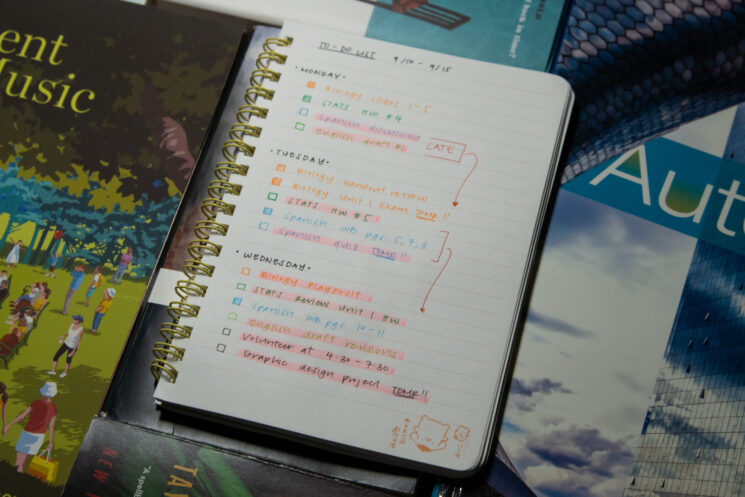 TO-DO LIST 9/10 - 9/15
• MONDAY •
Biology slides 1-5
STATS HW #4
Spanish
English draft #1
LATE
• TUESDAY •
Biology handout review
Biology Unit 1 Exam TOMR!!
STATS HW #5
Spanish WB pgs. 5, 7, 8
Spanish quiz TOMR!!
• WEDNESDAY •
Biology playposit
STATS Review Unit 1 HW
Spanish WB pgs. 10-11
English draft revisions
Volunteer at 4:30-7:30
Graphic design project TOMR!!
ent
Music
Aut